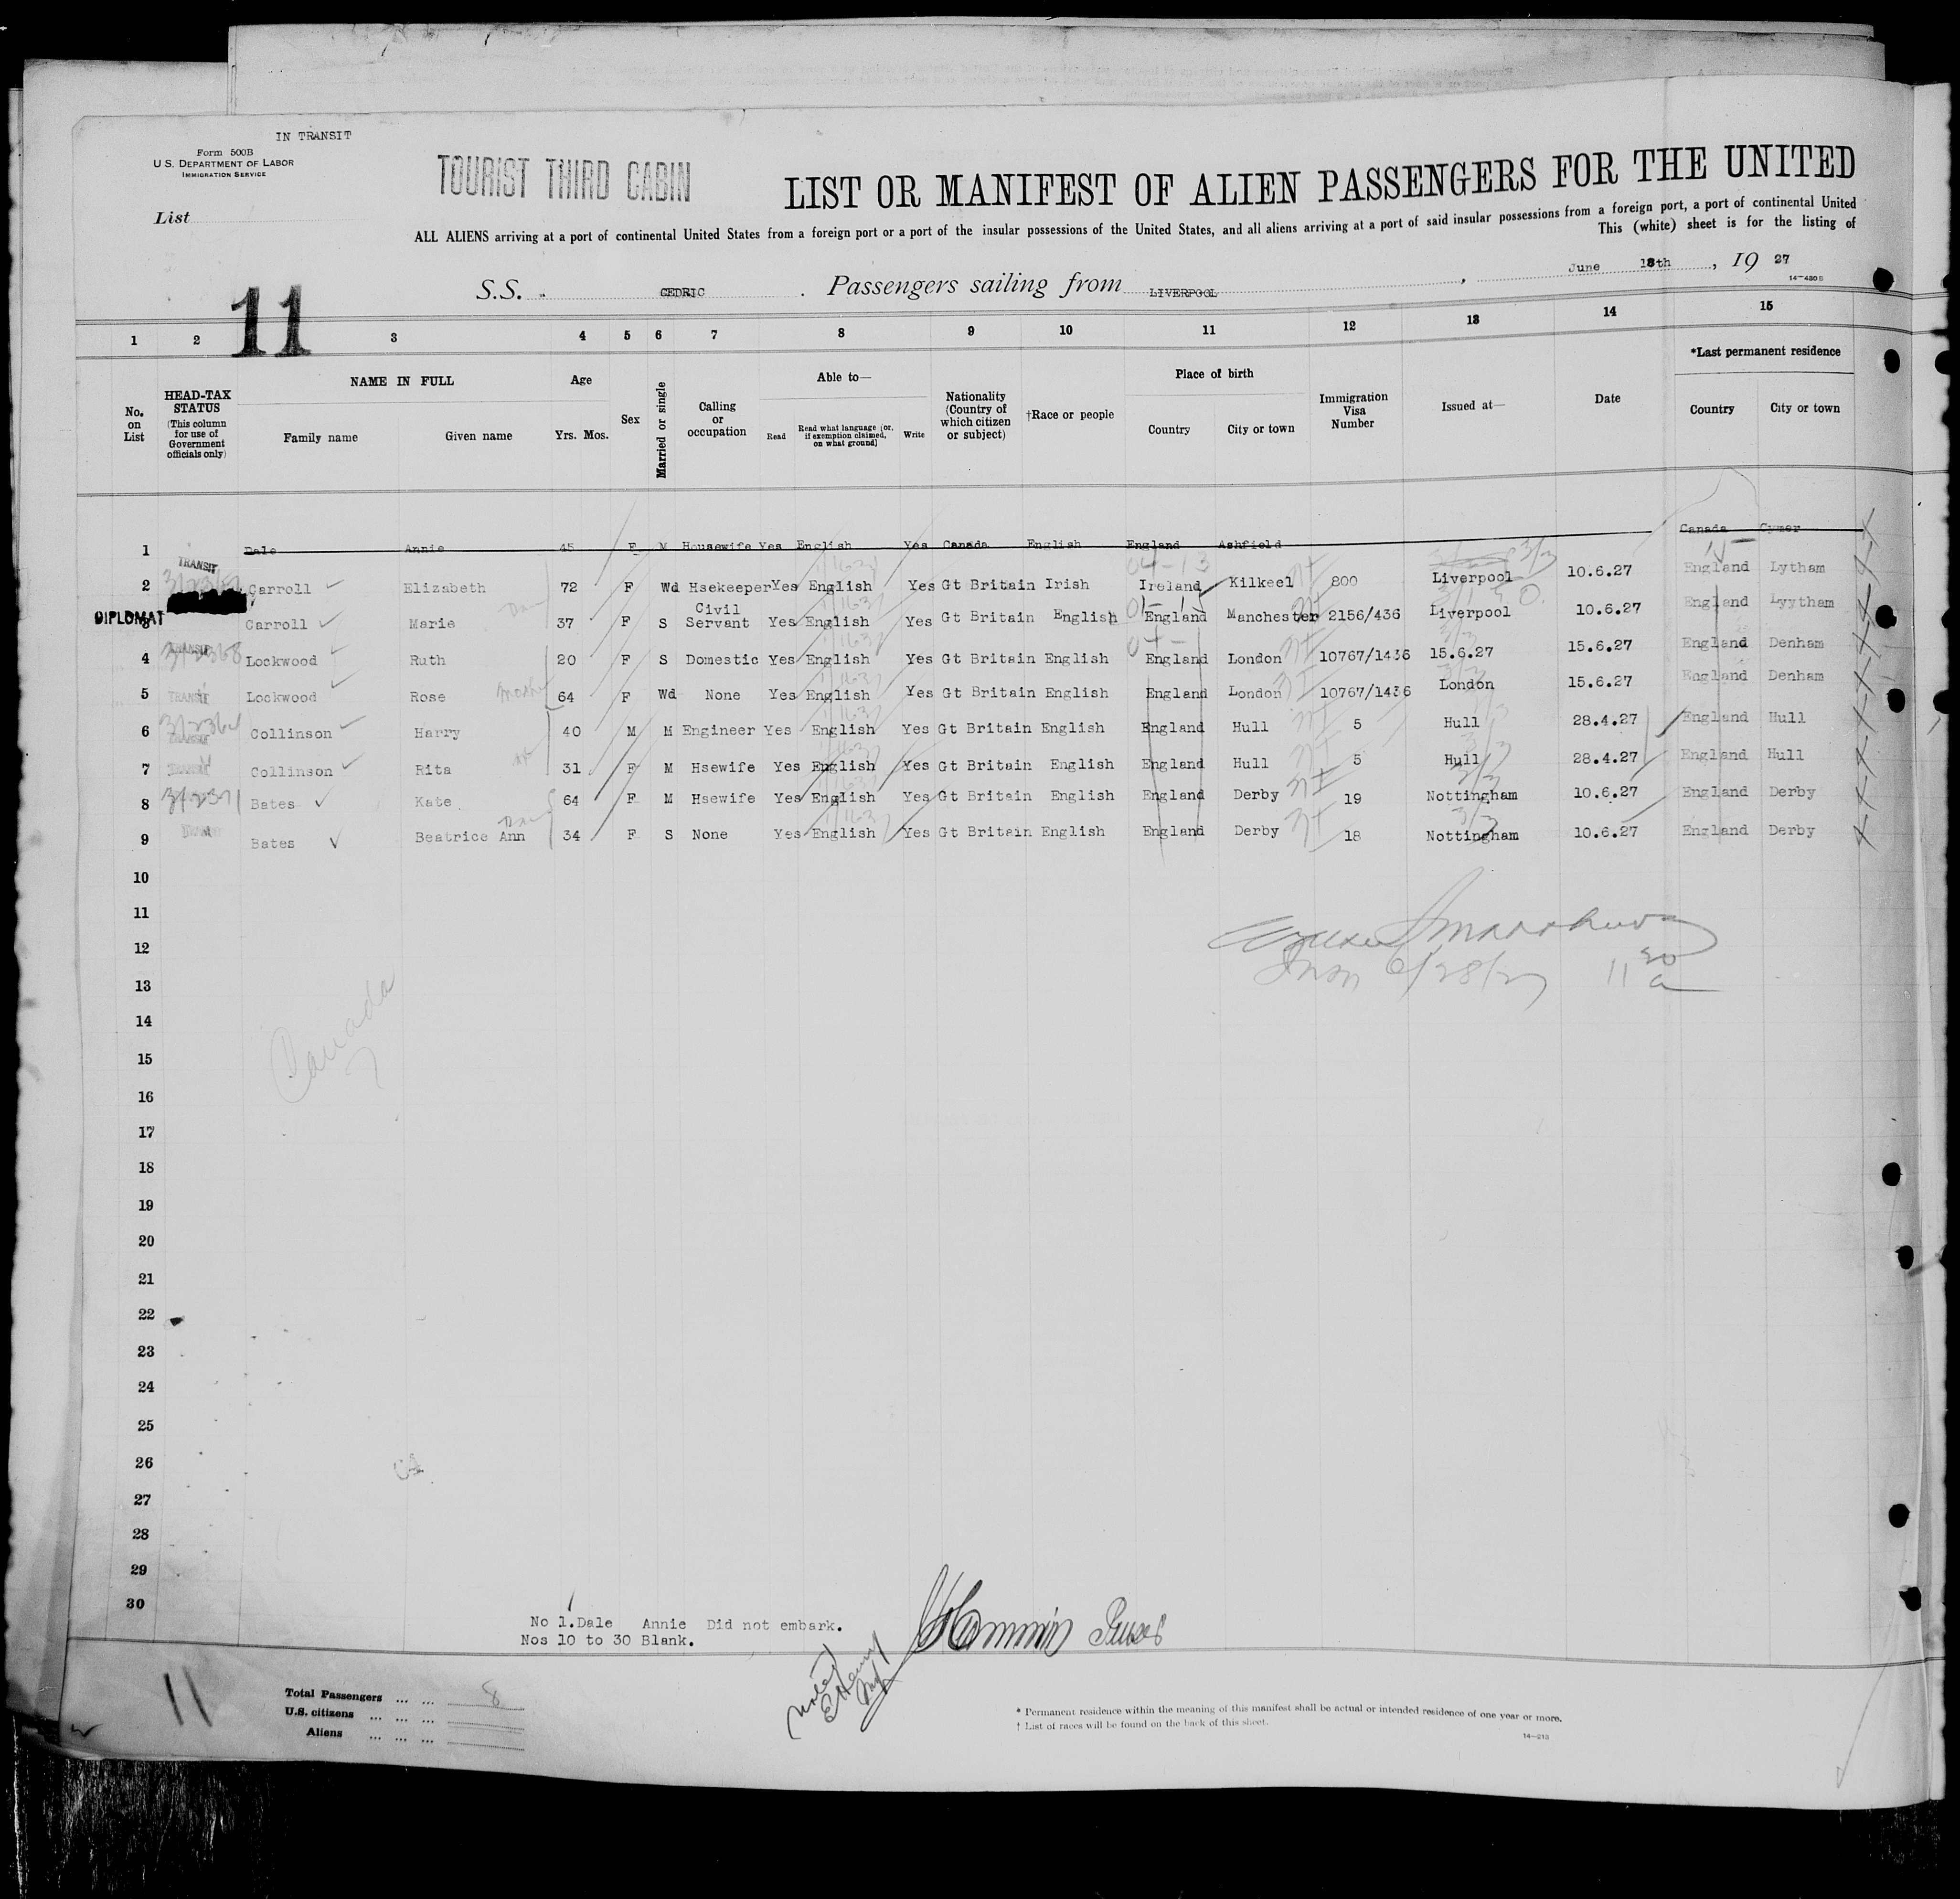 IN TRANSIT
Form 500B
U.S. DEPARTMENT OF LABOR
IMMIGRATION SERVICE
TOURIST THIRD CABIN
LIST OR MANIFEST OF ALIEN PASSENGERS FOR THE UNITED
List
ALL ALIENS arriving at a port of continental United States from a foreign port or a port of the insular possessions of the United States, and all aliens arriving at a port of said insular possessions from a foreign port, a port of continental United
This (white) sheet is for the listing of
11
S.S. CEDRIC . Passengers sailing from LIVERPOOL , June 18th , 19 27
14-480B
1 2 3 4 5 6 7 8 9 10 11 12 13 14 15
No. on List
HEAD-TAX STATUS (This column for use of Government officials only)
NAME IN FULL
Family name Given name
Age
Yrs. Mos.
Sex
Married or single
Calling or occupation
Able to—
Read Read what language [or, if exemption claimed, on what ground] Write
Nationality (Country of which citizen or subject)
†Race or people
Place of birth
Country City or town
Immigration Visa Number
Issued at—
Date
*Last permanent residence
Country City or town
1 Dale Annie 45 F M Housewife Yes English Yes Canada English England Ashfield Canada Cymer
2 TRANSIT Carroll Elizabeth 72 F Wd Hsekeeper Yes English Yes Gt Britain Irish Ireland Kilkeel 800 Liverpool 10.6.27 England Lytham
3 DIPLOMAT Carroll Marie 37 F S Civil Servant Yes English Yes Gt Britain English England Manchester 2156/436 Liverpool 10.6.27 England Lyytham
4 TRANSIT Lockwood Ruth 20 F S Domestic Yes English Yes Gt Britain English England London 10767/1436 15.6.27 15.6.27 England Denham
5 TRANSIT Lockwood Rose 64 F Wd None Yes English Yes Gt Britain English England London 10767/1436 London 15.6.27 England Denham
6 TRANSIT Collinson Harry 40 M M Engineer Yes English Yes Gt Britain English England Hull 5 Hull 28.4.27 England Hull
7 TRANSIT Collinson Rita 31 F M Hsewife Yes English Yes Gt Britain English England Hull 5 Hull 28.4.27 England Hull
8 Bates Kate 64 F M Hsewife Yes English Yes Gt Britain English England Derby 19 Nottingham 10.6.27 England Derby
9 TRANSIT Bates Beatrice Ann 34 F S None Yes English Yes Gt Britain English England Derby 18 Nottingham 10.6.27 England Derby
10
11
12
6/28/27 11 30 a
13
Canada
14
15
16
17
18
19
20
21
22
23
24
25
26
27
28
29
30
No 1.Dale Annie Did not embark.
Nos 10 to 30 Blank.
Purser
Noted
11
Total Passengers ... ... 8
U.S. citizens ... ... ...
Aliens ... ... ...
* Permanent residence within the meaning of this manifest shall be actual or intended residence of one year or more.
† List of races will be found on the back of this sheet.
14-213